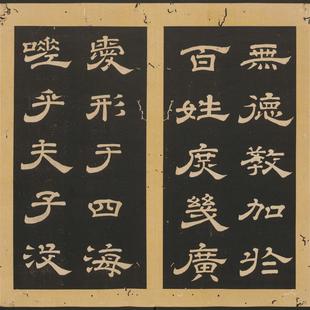 無德教加於
百姓庶幾廣
愛形于四海
嗟乎夫子没